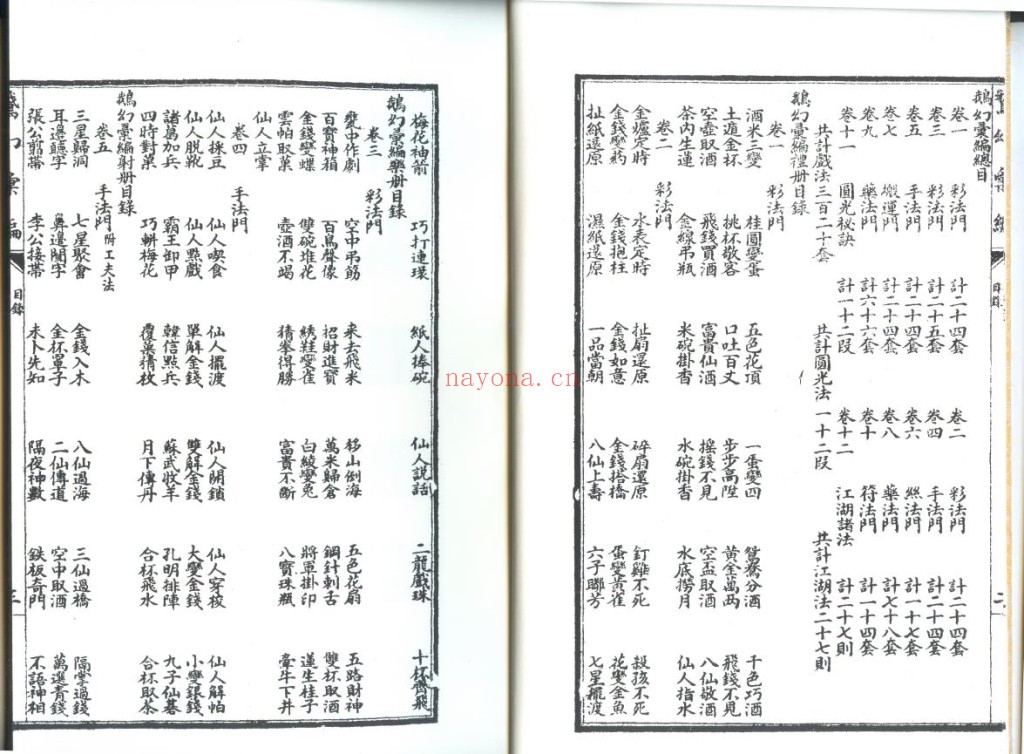 鵝幻彙編總目
卷一 彩法門 計二十四套 卷二 彩法門 計二十四套
卷三 彩法門 計二十五套 卷四 手法門 計二十四套
卷五 手法門 計二十四套 卷六 絲法門 計一十七套
卷七 搬運門 計二十四套 卷八 藥法門 計七十八套
卷九 藥法門 計六十六套 卷十 符法門 計一十四套
卷十一 圓光秘訣 計一十二段 卷十二 江湖諸法 計二十七則
共計戲法三百二十套 共計圓光法一十二段 共計江湖法二十七則
鵝幻彙編禮册目錄
卷一 彩法門
酒米三變 桂圓變蛋 五色花頂 一蛋變四 鴛鴦分酒 千色巧酒
土遁金杯 挑杯敬客 口吐百丈 步步高陞 黃金萬兩 飛錢不見
空壺取酒 飛錢買酒 富貴仙酒 搖錢不見 空盃取酒 八仙敬酒
茶內生蓮 金線吊瓶 米碗掛香 水碗掛香 水底撈月 仙人指水
卷二 彩法門
金爐定時 水表定時 扯扇還原 碎扇還原 釘雞不死 殺孩不死
金錢變葯 金錢抱柱 金錢如意 金錢搭橋 蛋變黃雀 花變金魚
扯紙還原 濕紙還原 一品當朝 八仙上壽 六子聯芳 七星龍渡
目錄
二
梅花袖箭 巧打連環 紙人捧碗 仙人說話 二龍戲珠 十杯齊飛
鵝幻彙編樂册目錄
卷三 彩法門
甕中作劇 空中吊筋 來去飛米 移山倒海 五色花扇 五路財神
百寶神箱 百鳥聲像 招財進寶 萬米歸倉 鋼針刺舌 雙杯取酒
金錢變蝶 雙碗堆花 綉鞋變雀 白綾變兔 將軍掛印 蓮生桂子
雲帕取菓 壺酒不竭 猜拳得勝 富貴不斷 八寶珠瓶 牽牛下井
仙人立掌
卷四 手法門
仙人採豆 仙人喫食 仙人擺渡 仙人開鎖 仙人穿梭 仙人解帕
仙人脫靴 仙人點戲 單解金錢 雙解金錢 大變金錢 小變銀錢
諸葛加兵 霸王卸甲 韓信點兵 蘇武牧羊 孔明排陣 九子仙碁
四時對菓 巧斬梅花 覆菓猜枚 月下傳丹 合杯飛水 合杯取茶
鵝幻彙編射册目錄
卷五 手法門 附工夫法
三星歸洞 七星聚會 金錢入木 八仙過海 三仙過橋 隔掌過錢
耳邊聽字 鼻邊聞字 金杯罩子 二仙傳道 空中取酒 萬選青錢
張公剪帶 李公接帶 未卜先知 隔夜神數 鉄板奇門 不語神相
目錄
三
nayona.cn